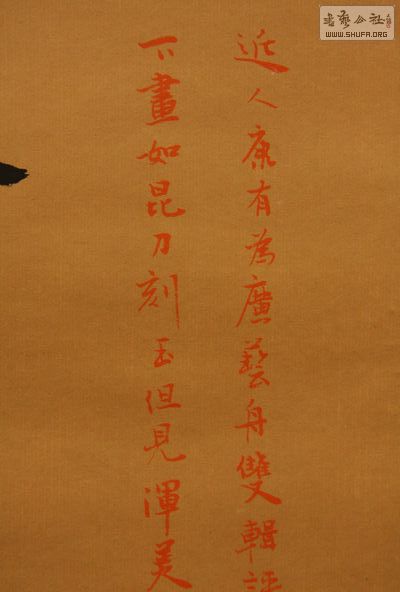 近人康有為廣藝舟雙輯評
下畫如昆刀刻玉但見渾美
書藝公社
WWW.SHUFA.ORG